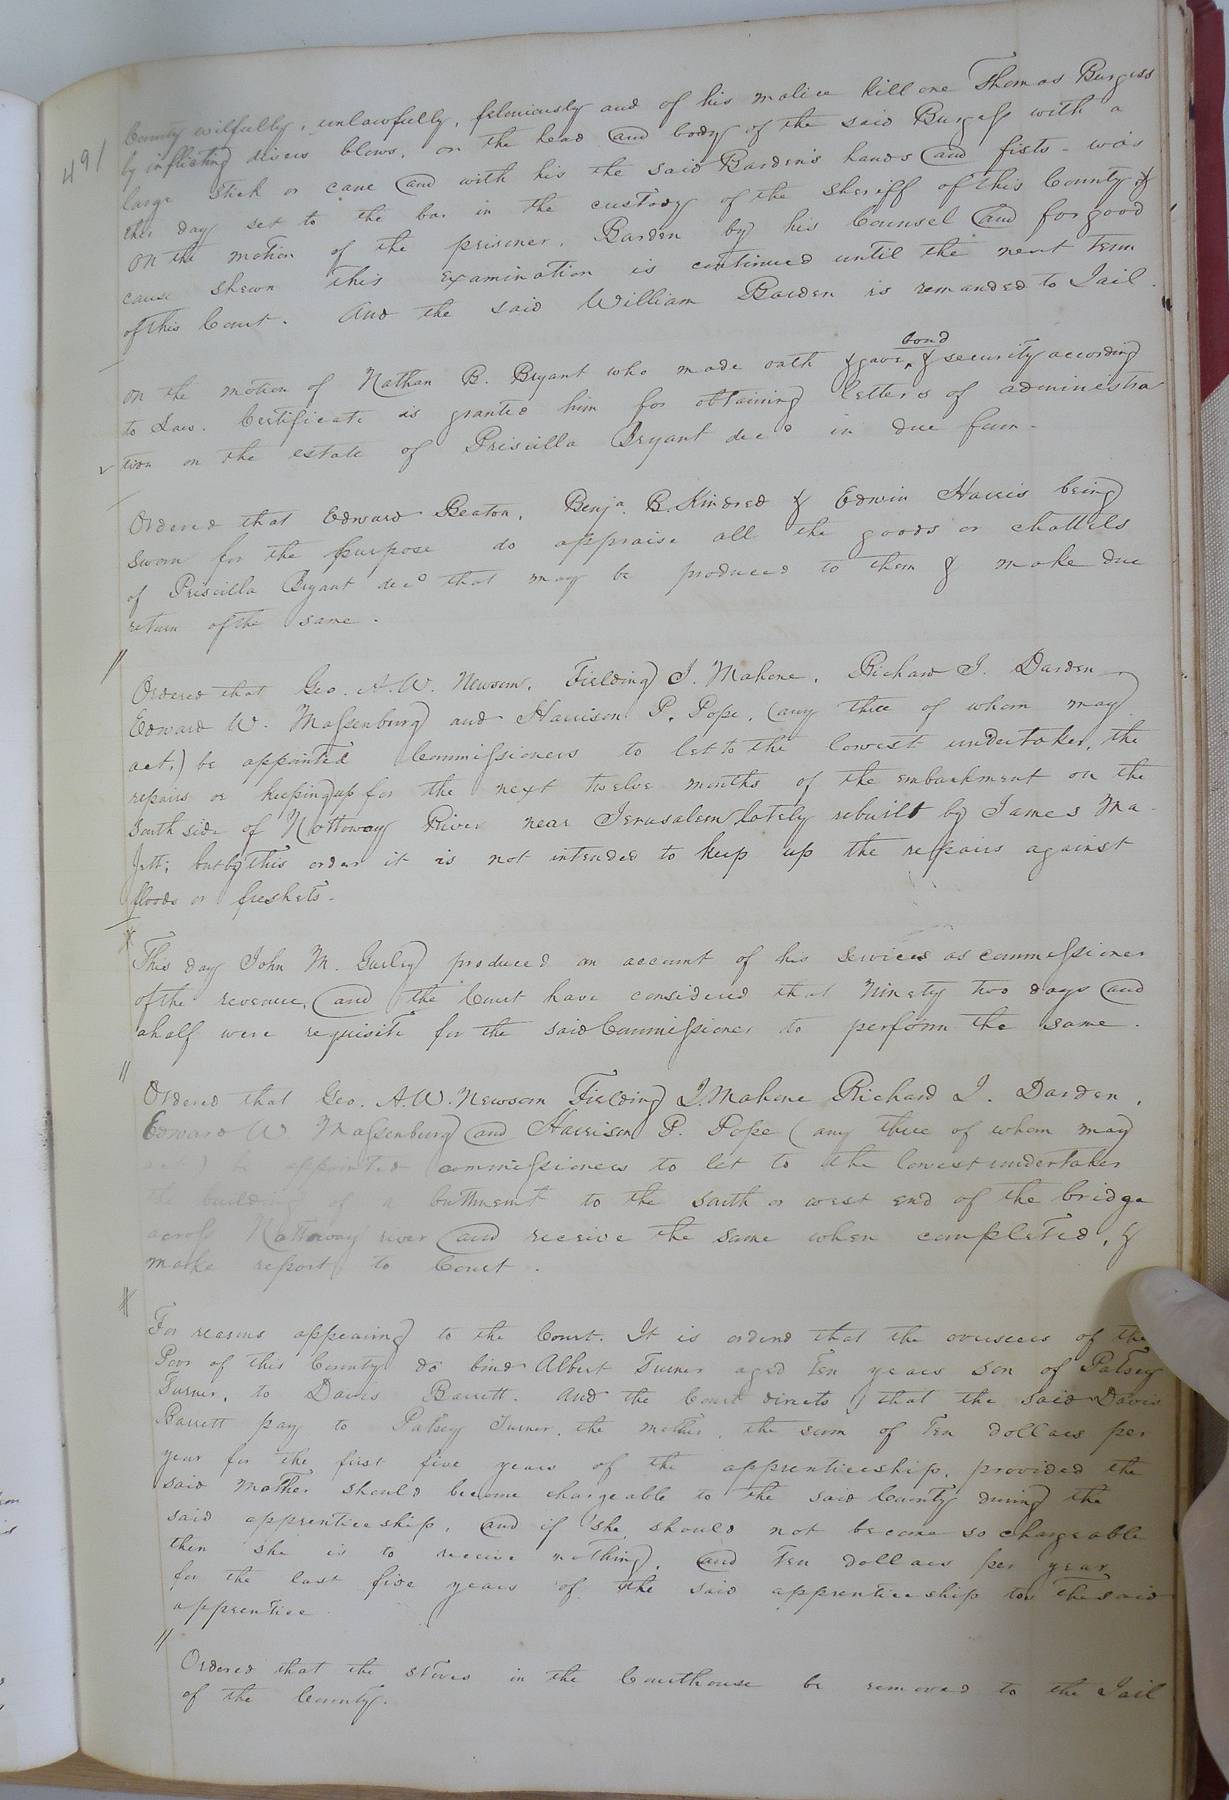 491
County wilfully, unlawfully, feloniously and of his malice kill one Thomas Burgess
by inflicting divers blows, on the head and body of the said Burgess with a
large stick or cane and with his the said Barden's hands and fists - was
this day set to the bar in the custody of the sheriff of this County &
on the motion of the prisoner, Barden by his Counsel and for good
cause shewn this examination is continued until the next Term
of this Court. And the said William Barden is remanded to Jail.
bond
On the motion of Nathan B. Bryant who made oath & gave & security according
to Law. Certificate is granted him for obtaining letters of administra
tion on the estate of Priscilla Bryant decd in due form -
Ordered that Edward Beaton, Benja. B. Kindred & Edwin Harris being
sworn for the purpose do appraise all the goods or chattels
of Priscilla Bryant decd that may be produced to them & make due
return of the same.
Ordered that Geo. A. W. Newsom, Fielding J. Mahone, Richard J. Darden
Edward W. Massenburg and Harrison P. Pope, (any three of whom may
act,) be appointed Commissioners to let to the lowest undertaker, the
repairs or keeping up for the next twelve months of the embankment on the
South side of Nottoway River near Jerusalem lately rebuilt by James Ma-
jett; but by this order it is not intended to keep up the repairs against
floods or freshets.
This day John M. Gurley produced an account of his services as commissioner
of the revenue, and the Court have considered that Ninety two days and
a half were requisite for the said Commissioner to perform the same.
Ordered that Geo. A. W. Newsom Fielding J. Mahone Richard J. Darden,
Edward W. Massenburg and Harrison P. Pope (any three of whom may
act) be appointed commissioners to let to the lowest undertaker
the building of a buttment to the south or west end of the bridge
across Nottoway river and receive the same when completed, &
make report to Court.
For reasons appearing to the Court. It is ordered that the overseers of the
Poor of this County do bind Albert Turner aged Ten years son of Patsey
Turner, to Davis Barrett. And the Court directs that the said Davis
Barrett pay to Patsey Turner, the mother, the sum of Ten dollars per
year for the first five years of the apprenticeship, provided the
said Mother should become chargeable to the said County during the
said apprenticeship, and if she should not become so chargeable
then she is to receive nothing, and Ten dollars per year
for the last five years of the said apprenticeship to the said
apprentice
Ordered that the stoves in the Courthouse be removed to the Jail
of the County.